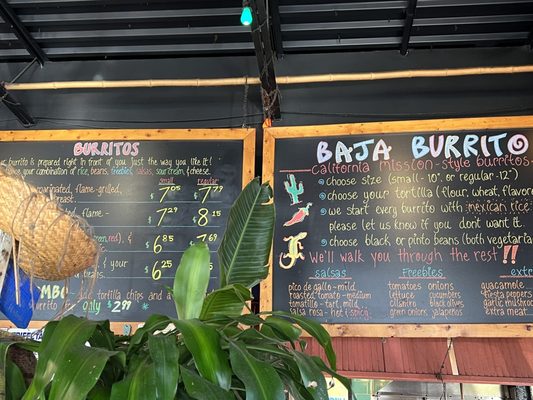 BURRITOS
burrito is prepared right in front of you just the way you like it!
your combination of rice, beans, freebies, salsas, sour cream, & cheese.
Small
regular
marinated, flame-grilled
$7.05
$7.79
flame-
$7.29
$8.15
$6.85
$7.69
& your
$6.25
MB
tortilla chips
Only $2.99
BAJA BURRITO
California mission-style burritos
choose size (small-10" or regular-12")
choose your tortilla (flour, wheat, flavore
we start every burrito with mexican rice
please let us know if you don't want it
choose black or pinto beans (both vegetaria
We'll walk you through the rest!!
salsas
Freebies
extra
pico de gallo - medium
tomatoes onions
guacamole
roasted tomato - medium
lettuce cucumbers
fiesta peppers
tomatillo - tart, mild
cilantro black olives
sour cream
salsa rosa - hot! spicy
green onions jalapeños
extra meat